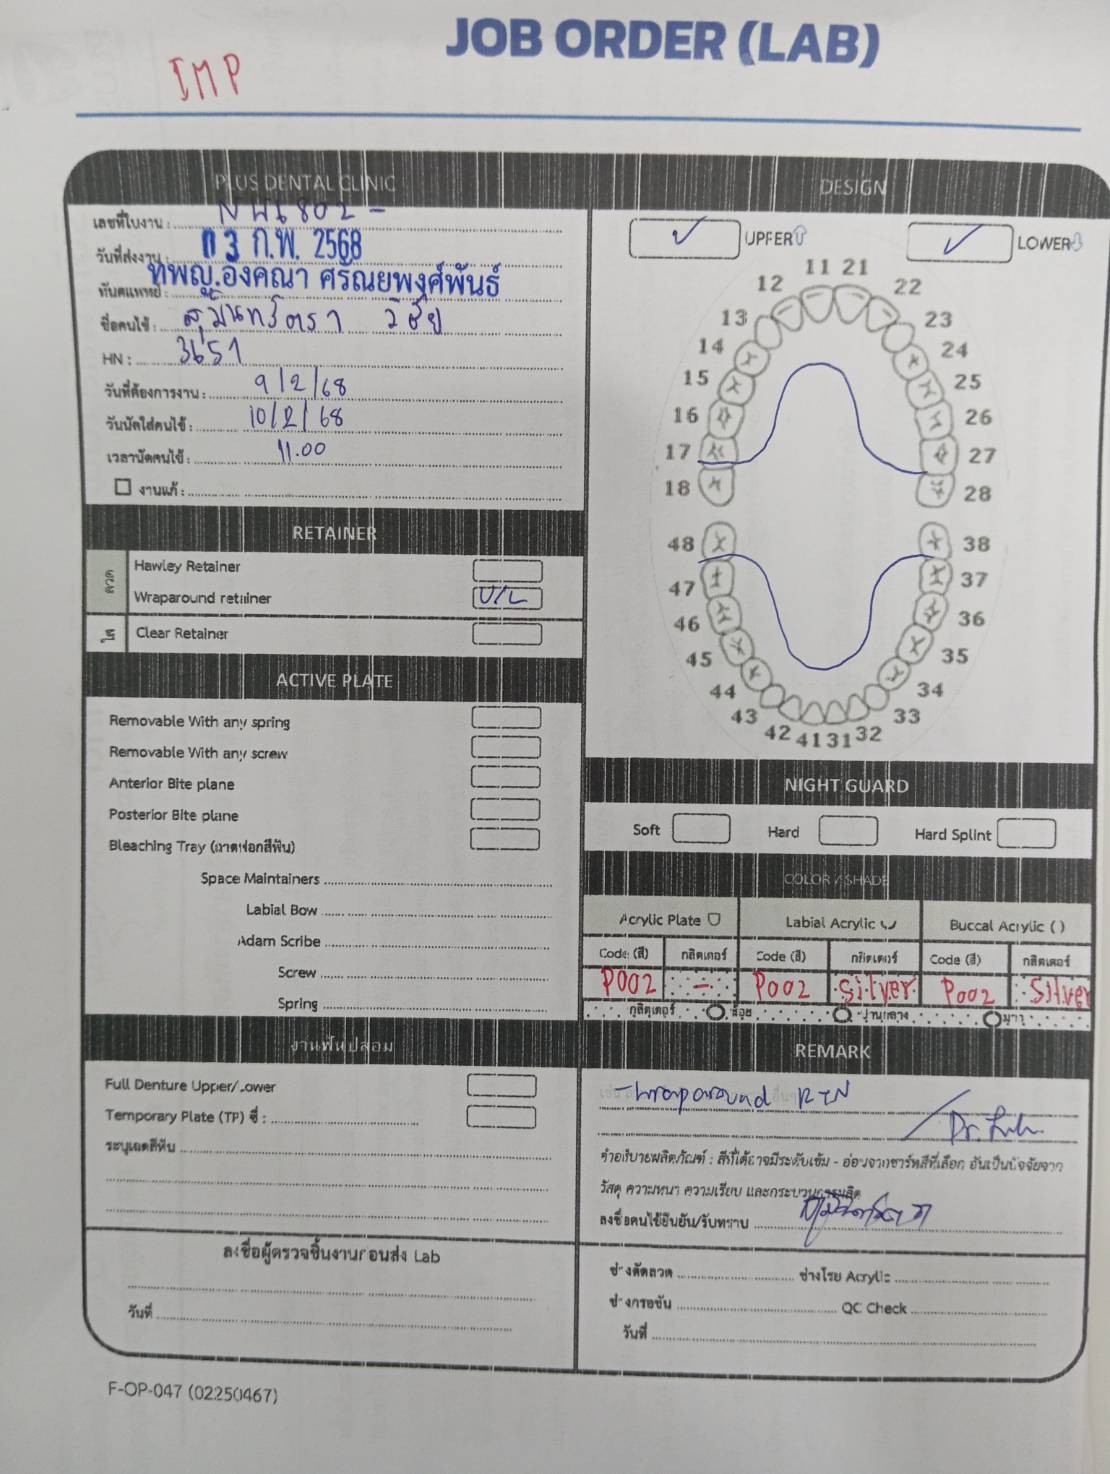 JOB ORDER (LAB)
IMP
PLUS DENTAL CLINIC
เลขที่ใบงาน :
วันที่ส่งงาน 03 ก.พ. 2568
ทันตแพทย์: ทพญ.อังคณา ศรัณยพงศ์พันธ์
ชื่อคนไข้ : สุมินทร์ตรา วิชัย
HN : 3651
วันที่ต้องการงาน : 9/2/68
วันนัดใส่คนไข้ : 10/2/68
เวลานัดคนไข้ : 11.00
งานแก้ :
RETAINER
ลวด
Hawley Retainer
Wraparound retainer U/L
ใส
Clear Retainer
ACTIVE PLATE
Removable With any spring
Removable With any screw
Anterior Bite plane
Posterior Bite plane
Bleaching Tray (ถาดฟอกสีฟัน)
Space Maintainers
Labial Bow
Adam Scribe
Screw
Spring
งานฟันปลอม
Full Denture Upper/Lower
Temporary Plate (TP) ซี่ :
ระบุเฉดสีฟัน
ลงชื่อผู้ตรวจชิ้นงานก่อนส่ง Lab
วันที่
DESIGN
UPPER LOWER
11 21
12 22
13 23
14 24
15 25
16 26
17 27
18 28
48 38
47 37
46 36
45 35
44 34
43 33
42 41 31 32
NIGHT GUARD
Soft Hard Hard Splint
COLOR / SHADE
Acrylic Plate Labial Acrylic Buccal Acrylic ( )
Code (สี) กลิตเตอร์ Code (สี) กลิตเตอร์ Code (สี) กลิตเตอร์
P002 - P002 Silver P002 Silver
กลิตเตอร์ น้อย ปานกลาง มาก
REMARK
- Wraparound RTN
Dr.
คำอธิบายผลิตภัณฑ์ : สีที่ได้อาจมีระดับเข้ม - อ่อนจากชาร์ทสีที่เลือก อันเป็นปัจจัยจาก
วัสดุ ความหนา ความเรียบ และกระบวนการผลิต
ลงชื่อคนไข้ยืนยัน/รับทราบ
ช่างดัดลวด ช่างโรย Acrylic
ช่างกรอขัด QC Check
วันที่
F-OP-047 (02250467)